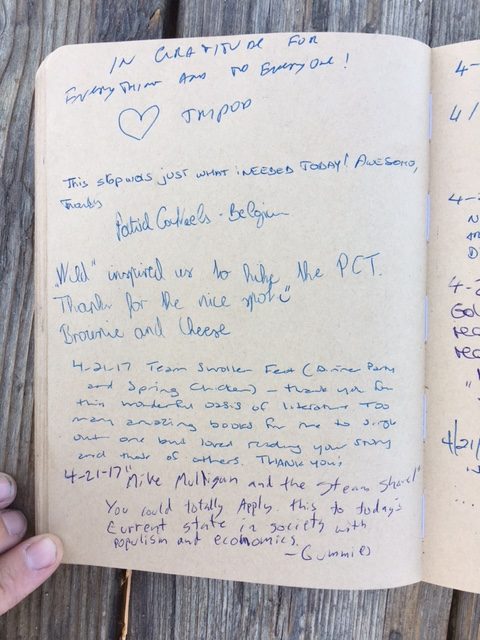 IN GRATITUDE FOR
EVERYTHING AND TO EVERYONE!
TRIPOD
This stop was JUST WHAT I NEEDED TODAY! AWESOME,
Thanks
Patrick - Belgium
„Wild" inspired us to hike the PCT.
Thanks for the nice spot
Brownie and Cheese
4-21-17 Team Swollen Feet (Dinner Party
and Spring Chicken) - thank you for
this wonderful oasis of literature Too
many amazing books for me to single
out one but loved reading your story
and those of others. THANK YOU!
4-21-17 "Mike Mulligan and the Steam Shovel"
You could totally Apply this to today's
current state in society with
populism and economics.
-Gummies
4-
4/
4-2
4-2
Gol
rec
rec
4/21/